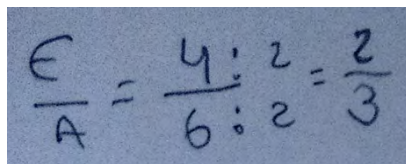 E/A = 4:2/6:2 = 2/3